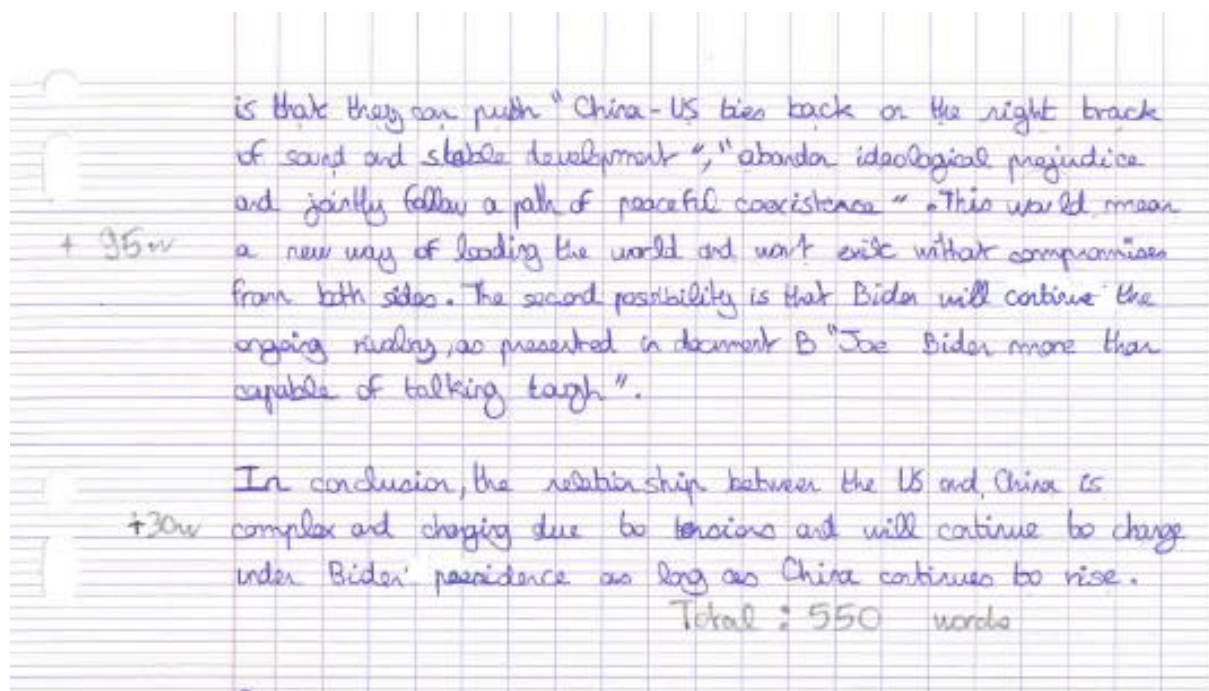 is that they can push " China-US ties back on the right track
of sound and stable development "," abandon ideological prejudice
and jointly follow a path of peaceful coexistence ". This would mean
+ 95w a new way of leading the world and won't exist without compromises
from both sides. The second possibility is that Biden will continue the
ongoing rivalry, as presented in document B "Joe Biden more than
capable of talking tough".
In conclusion, the relationship between the US and China is
+30w complex and changing due to tensions and will continue to change
under Biden' presidence as long as China continues to rise.
Total : 550 words